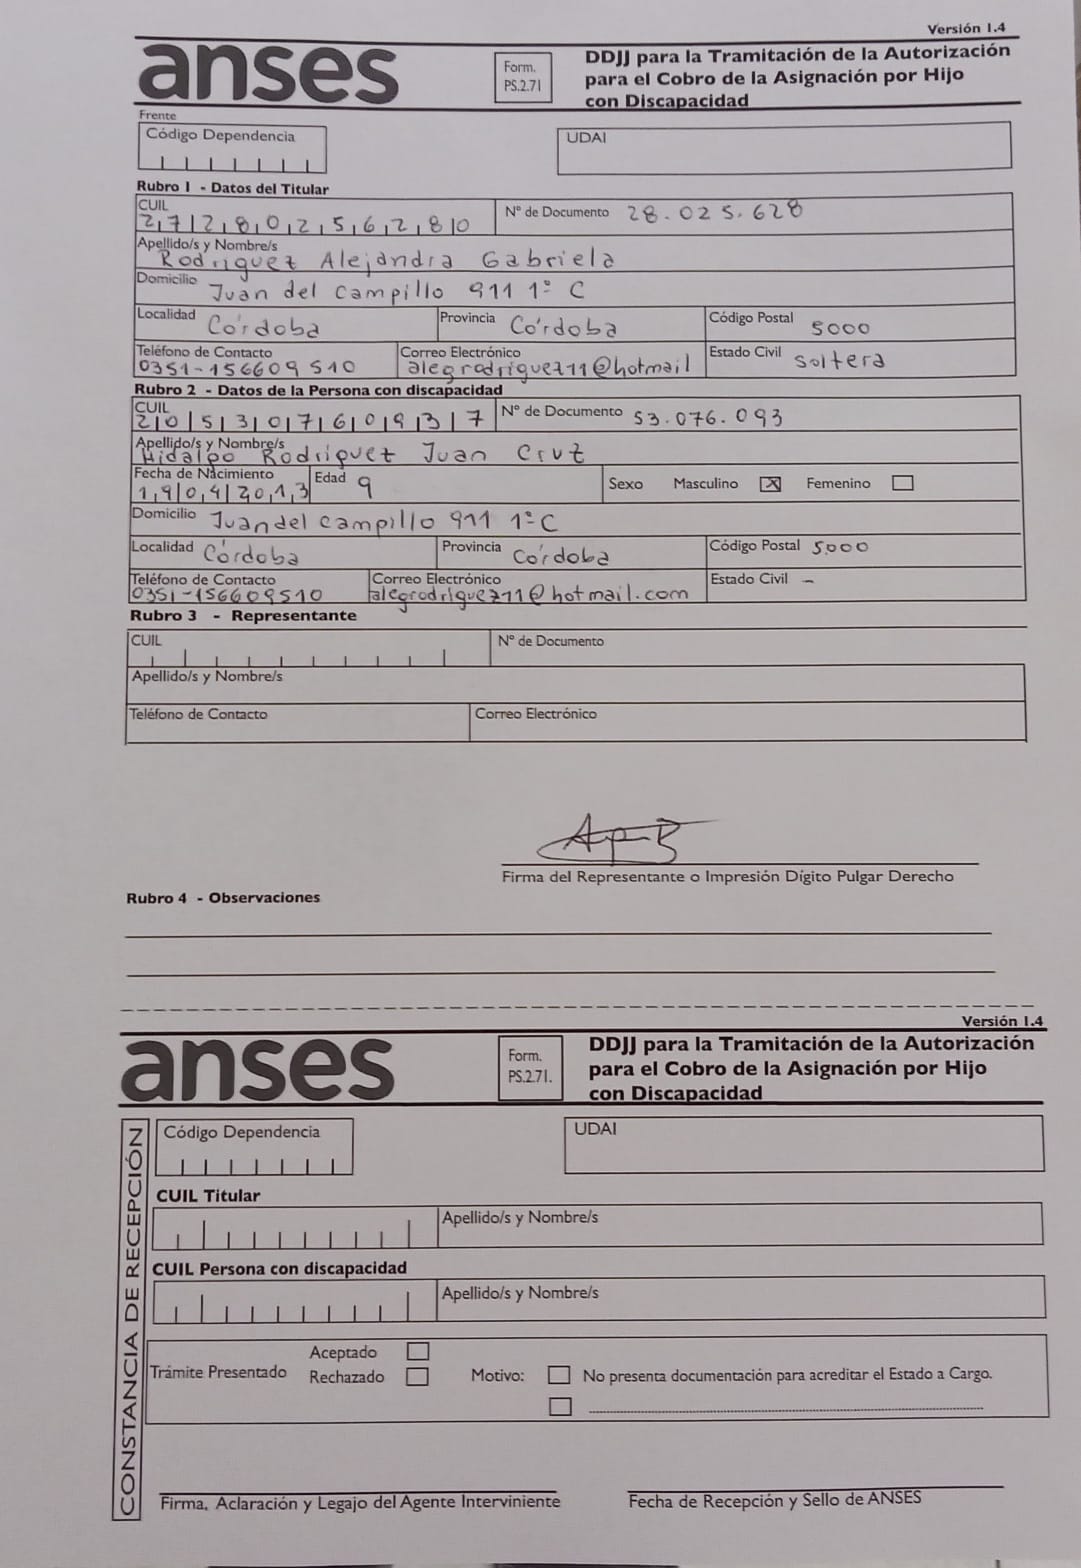 Versión 1.4
anses
Form.
PS.2.71
DDJJ para la Tramitación de la Autorización
para el Cobro de la Asignación por Hijo
con Discapacidad
Frente
Código Dependencia
UDAI
Rubro 1 - Datos del Titular
CUIL
27280256280
Nº de Documento 28.025.628
Apellido/s y Nombre/s
Rodriguez Alejandra Gabriela
Domicilio Juan del Campillo 911 1º C
Localidad Córdoba
Provincia Córdoba
Código Postal 5000
Teléfono de Contacto
0351-156609510
Correo Electrónico
alegrodriguez11@hotmail
Estado Civil soltera
Rubro 2 - Datos de la Persona con discapacidad
CUIL
20530760937
Nº de Documento 53.076.093
Apellido/s y Nombre/s
Hidalgo Rodriguez Juan Cruz
Fecha de Nacimiento
19042013
Edad 9
Sexo Masculino X Femenino
Domicilio Juan del Campillo 911 1º C
Localidad Córdoba
Provincia Córdoba
Código Postal 5000
Teléfono de Contacto
0351-156609510
Correo Electrónico
alegrodriguez11@hotmail.com
Estado Civil -
Rubro 3 - Representante
CUIL
Nº de Documento
Apellido/s y Nombre/s
Teléfono de Contacto
Correo Electrónico
Firma del Representante o Impresión Dígito Pulgar Derecho
Rubro 4 - Observaciones
Versión 1.4
anses
Form.
PS.2.71.
DDJJ para la Tramitación de la Autorización
para el Cobro de la Asignación por Hijo
con Discapacidad
CONSTANCIA DE RECEPCIÓN
Código Dependencia
UDAI
CUIL Titular
Apellido/s y Nombre/s
CUIL Persona con discapacidad
Apellido/s y Nombre/s
Trámite Presentado
Aceptado
Rechazado
Motivo:
No presenta documentación para acreditar el Estado a Cargo.
Firma, Aclaración y Legajo del Agente Interviniente
Fecha de Recepción y Sello de ANSES